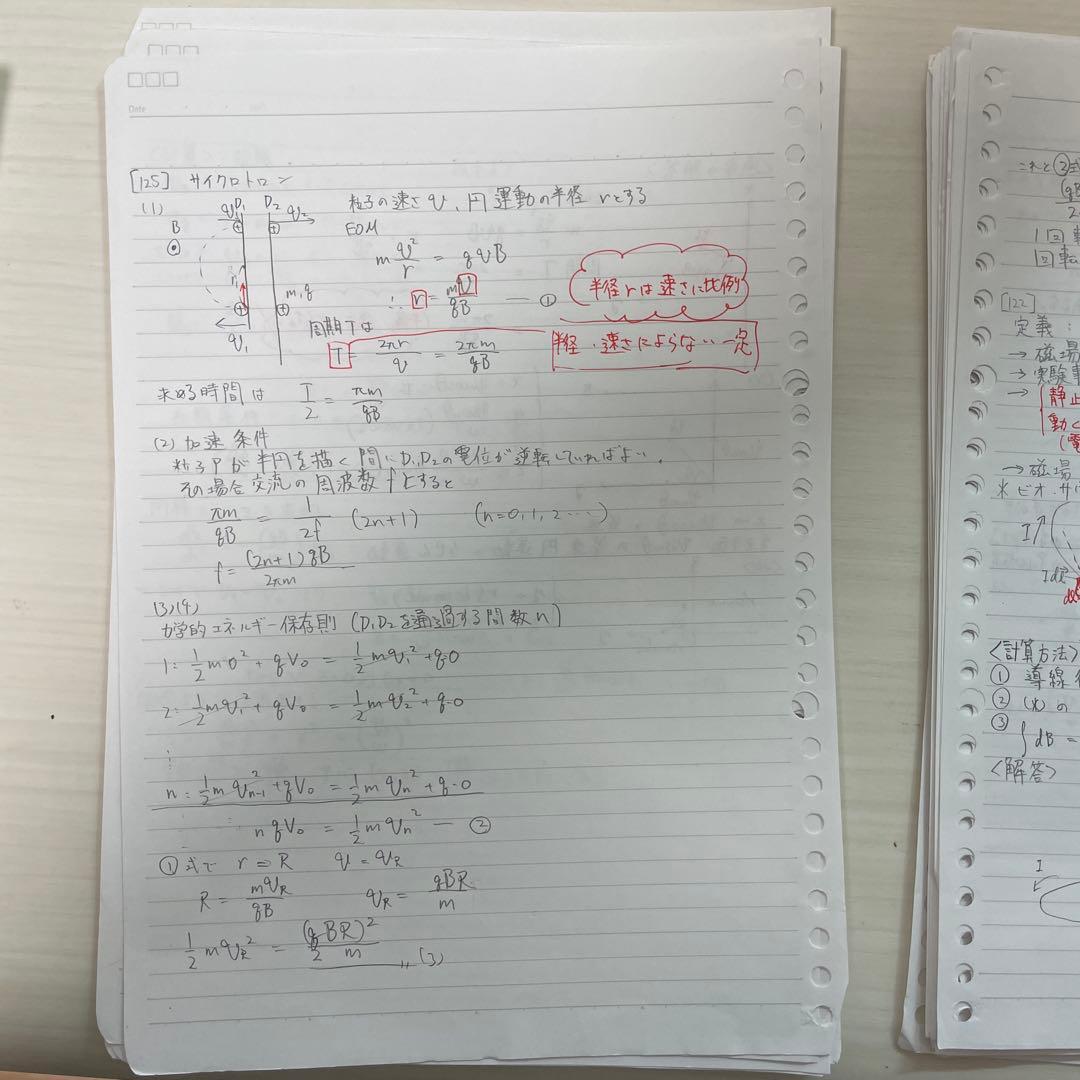 Date
[125] サイクロトロン
(1) 粒子の速さ v、円運動の半径 rとする
D1 D2
v2
B
EOM
m v²/r = qvB
r1
m,q
∴ r = mv/qB ― ①
半径rは速さに比例
v1
周期Tは
T = 2πr/v = 2πm/qB
半径・速さによらない 一定
求める時間は T/2 = πm/qB
(2) 加速条件
粒子Pが半円を描く間にD1,D2の電位が逆転していればよい.
その場合交流の周波数fとすると
πm/qB = 1/2f (2n+1) (n=0,1,2…)
f = (2n+1)qB/2πm
(3)(4)
力学的エネルギー保存則 (D1D2を通過する回数n)
1: 1/2 m0² + qV0 = 1/2 mv1² + q·0
2: 1/2 mv1² + qV0 = 1/2 mv2² + q·0
⋮
n: 1/2 m v²n-1 + qV0 = 1/2 m vn² + q·0
nqV0 = 1/2 m vn² ― ②
①式で r = R v = vR
R = mvR/qB vR = qBR/m
1/2 m vR² = (qBR)²/2m 〃(3)
これと③式
1回転
回転
[122]
定義:
→ 磁場
→ 実験事
→ 静止
動く
(電
→ 磁場
※ ビオ・サバ
I
Idl
<計算方法>
① 導線
② (※)の
③ ∫dB =
<解答>
I